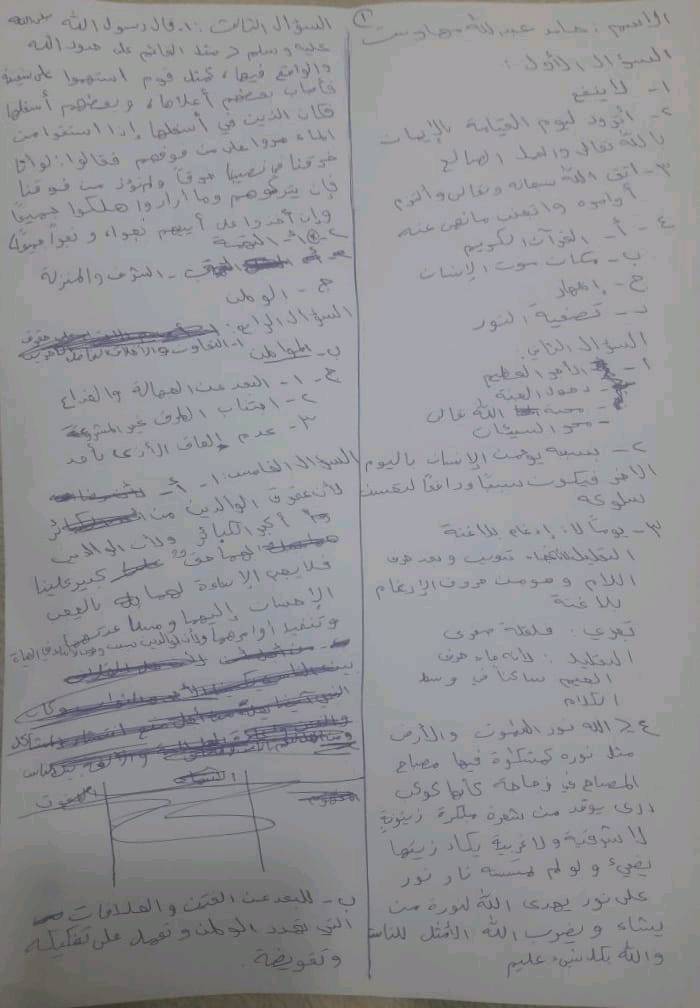 الاسم: حامد عبد الله
السؤال الأول:
١- لا ينفع
٢- أتزود ليوم القيامة بالإيمان
بالله تعالى والعمل الصالح
٣- اتق الله سبحانه وتعالى والتزم
أوامره واجتنب ما نهى عنه
٤- أ- القرآن الكريم
ب- مكان موت الإنسان
ج- إظهار
د- تصفية النور
السؤال الثاني:
١- الأجر العظيم
- دخول الجنة
- محبة الله تعالى
- محو السيئات
٢- بسببه يؤمن الإنسان باليوم
الآخر فيكون سببًا ودافعًا لتحسين
سلوكه
٣- يومًا لا: إدغام بلا غنة
التعليل: التقاء تنوين وبعد حرف
اللام وهو من حروف الإدغام
بلا غنة
تجري: قلقلة صغرى
التعليل: لأنه جاء حرف
الجيم ساكنًا في وسط
الكلام
٤ الله نور السموت والأرض
مثل نوره كمشكوة فيها مصباح
المصباح في زجاجة كأنها كوكب
دري يوقد من شجرة مبكرة زيتونة
لا شرقية ولا غربية يكاد زيتها
يضيء ولو لم تمسسه نار نور
على نور يهدي الله لنوره من
يشاء ويضرب الله الأمثل للناس
والله بكل شيء عليم
السؤال الثالث: ١- قال رسول الله صلى الله
عليه وسلم مثل القائم على حدود الله
والواقع فيها، كمثل قوم استهموا على سفينة
فأصاب بعضهم أعلاها، وبعضهم أسفلها
فكان الذين في أسفلها إذا استقوا من
الماء مروا على من فوقهم فقالوا: لو أنا
خرقنا في نصيبنا خرقًا ولم نؤذ من فوقنا
فإن يتركوهم وما أرادوا هلكوا جميعًا
وإن أخذوا على أيديهم نجوا، ونجوا جميعًا
٢- أ-
ب- الشرف والمنزلة
ج- الوطن
السؤال الرابع:
١- التعاون
ب- المواطن
ج- ١- البعد عن العمالة والخداع
٢- اجتناب الطرف غير المشروعة
٣- عدم إلحاق الأذى بأحد
السؤال الخامس: ١- أ-
لأن عقوق الوالدين من
أكبر الكبائر ولأن الوالدين
لهما حق كبير علينا
فلا يجب الإساءة لهما بل يجب
الإحسان إليهما
وتنفيذ أوامرهما
ب- للبعد عن الفتن والخلافات
التي تهدد الوطن وتعمل على تفكيكه
وتقويضه